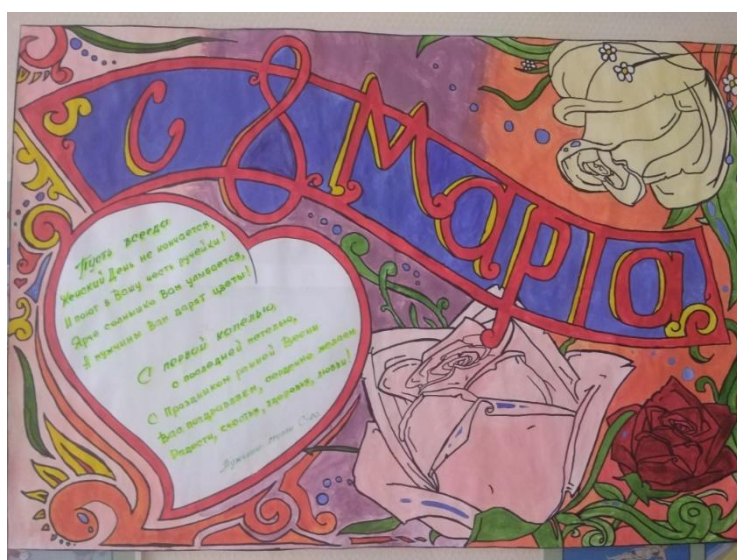 С 8 Марта
Пусть всегда
Женский День не кончается,
И поют в Вашу честь ручейки!
Ярче солнышко Вам улыбается,
А мужчины Вам дарят цветы!
С первой капелью,
с последней метелью,
С Праздником ранней Весны
Вас поздравляем, сердечно желаем
Радости, счастья, здоровья, любви!